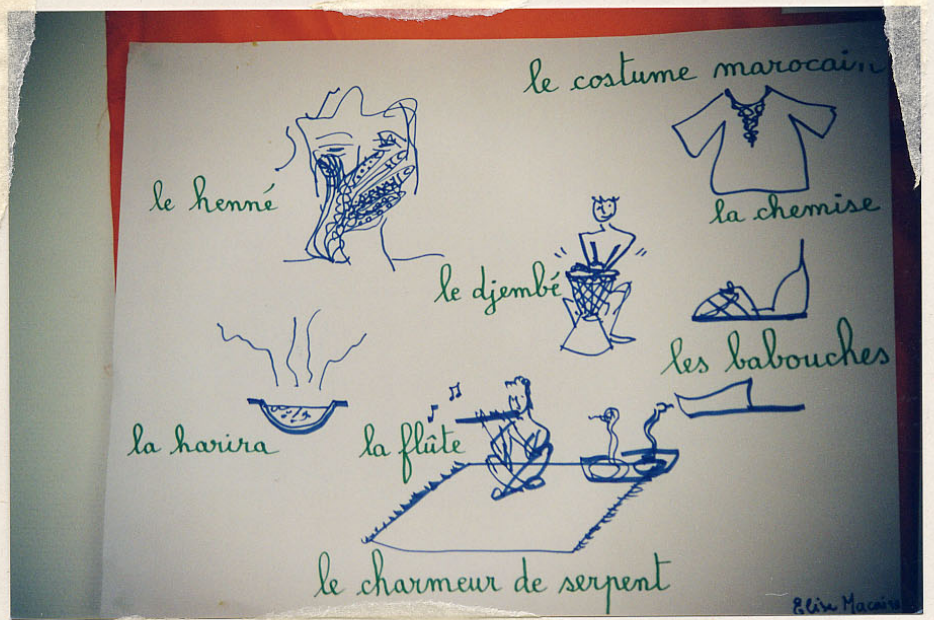 le costume marocain
le henné
la chemise
le djembé
les babouches
la harira
la flûte
le charmeur de serpent
Elise